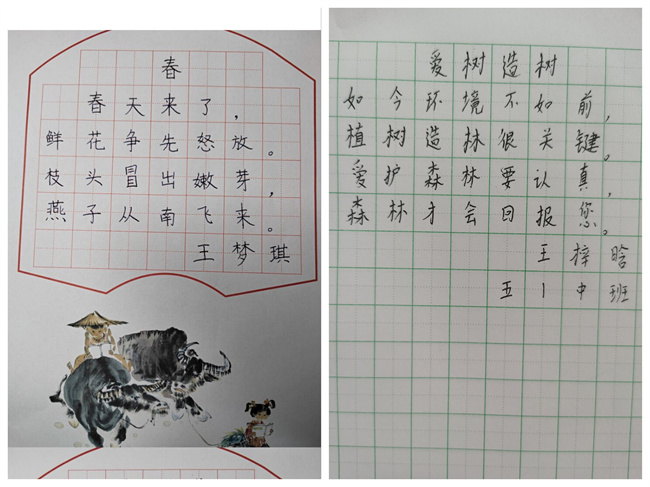 春
春天来了，
鲜花争先怒放。
枝头冒出嫩芽，
燕子从南飞来。
王梦琪
爱树造树
如今环境不如前，
植树造林很关键。
爱护森林要认真，
森林才会回报您。
王梓晗
五1中班